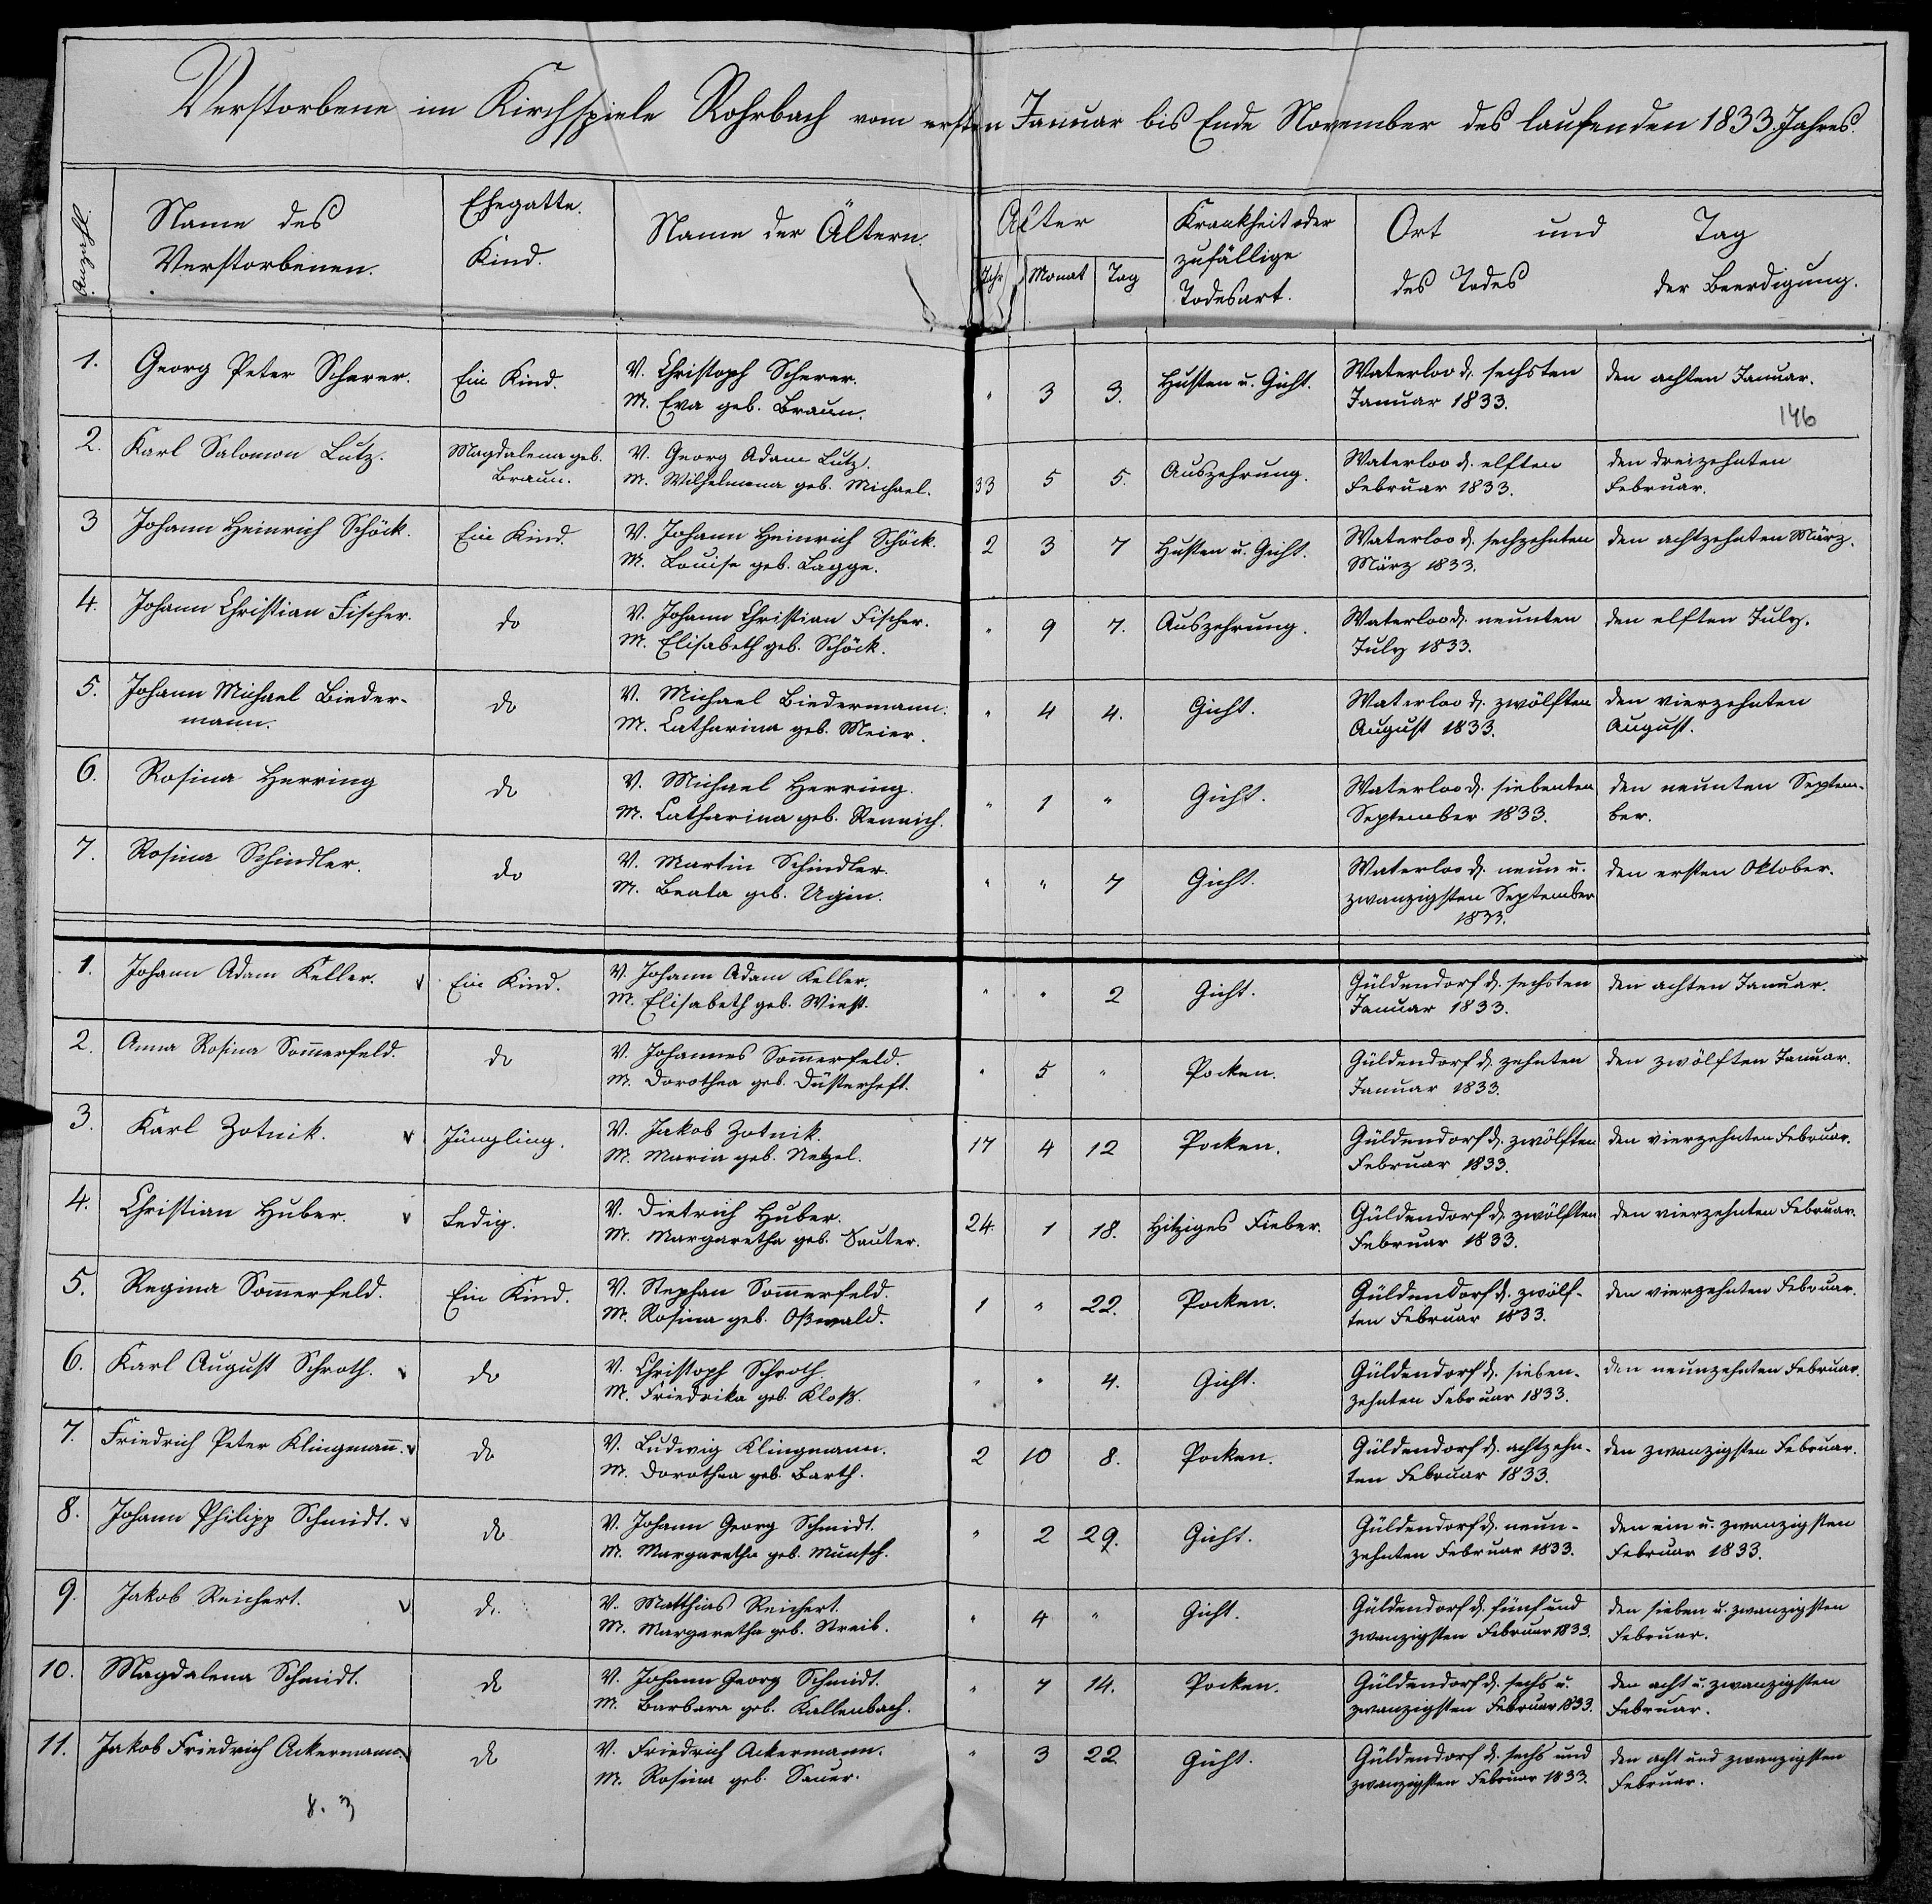 Verstorbene im Kirchspiele Rohrbach vom ersten Januar bis Ende November des laufenden 1833. Jahres.
Anzahl.
Name des
Verstorbenen.
Ehegatte.
Kind.
Name der Ältern.
Alter
Jahr Monat Tag
Krankheit oder
zufällige
Todesart.
Ort und Tag
des Todes der Beerdigung.
1. Georg Peter Scherer. Ein Kind. V. Christoph Scherer. " 3 3. Husten u. Gicht. Waterloo d. sechsten den achten Januar.
M. Eva geb. Braun. Januar 1833.
146
2. Karl Salomon Lutz. Magdalena geb. V. Georg Adam Lutz. 33 5 5. Auszehrung. Waterloo d. elften den dreizehnten
Braun. M. Wilhelmena geb. Michael. Februar 1833. Februar.
3 Johann Heinrich Schöck. Ein Kind. V. Johann Heinrich Schöck. 2 3 7 Husten u. Gicht. Waterloo d. sechzehnten den achtzehnten März.
M. Louise geb. Lagge. März 1833.
4. Johann Christian Fischer. do V. Johann Christian Fischer. " 9 7. Auszehrung. Waterloo d. neunten den elften July.
M. Elisabeth geb. Schöck. July 1833.
5. Johann Michael Bieder- do V. Michael Biedermann. " 4 4. Gicht. Waterloo d. zwölften den vierzehnten
mann. M. Catharina geb. Meier. August 1833. August.
6. Rosina Herring do V. Michael Herring. " 1 " Gicht. Waterloo d. siebenten den neunten Septem-
M. Catharina geb. Rennich. September 1833. ber.
7. Rosina Schindler. do V. Martin Schindler. " " 7 Gicht. Waterloo d. neun u. den ersten Oktober.
M. Beata geb. Ugin. zwanzigsten September
1833.
1. Johann Adam Keller. v Ein Kind. V. Johann Adam Keller. " " 2 Gicht. Güldendorf d. sechsten den achten Januar.
M. Elisabeth geb. Wiest. Januar 1833.
2. Anna Rosina Som̄erfeld. do V. Johannes Som̄erfeld. " 5 " Pocken. Güldendorf d. zehnten den zwölften Januar.
M. Dorothea geb. Düsterheft. Januar 1833.
3. Karl Zotnik. v Jüngling. V. Jakob Zotnik. 17 4 12 Pocken. Güldendorf d. zwölften den vierzehnten Februar.
M. Maria geb. Netzel. Februar 1833.
4. Christian Huber. v Ledig. V. Dietrich Huber. 24 1 18. Hitziges Fieber. Güldendorf d. zwölften den vierzehnten Februar.
M. Margaretha geb. Sauter. Februar 1833.
5. Regina Som̄erfeld. Ein Kind. V. Stephan Som̄erfeld. 1 " 22. Pocken. Güldendorf d. zwölf- den vierzehnten Februar.
M. Rosina geb. Oßwald. ten Februar 1833.
6. Karl August Schroth. v do V. Christoph Schroth. " " 4. Gicht. Güldendorf d. sieben- den neunzehnten Februar.
M. Friedrika geb. Kloß. zehnten Februar 1833.
7. Friedrich Peter Klingeman̄. v do V. Ludwig Klingemann. 2 10 8. Pocken. Güldendorf d. achtzehn- den zwanzigsten Februar.
M. Dorothea geb. Barth. ten Februar 1833.
8. Johann Philipp Schmidt. v do V. Johann Georg Schmidt. " 2 29. Gicht. Güldendorf d. neun- den ein u. zwanzigsten
M. Margaretha geb. Munsch. zehnten Februar 1833. Februar 1833.
9. Jakob Reichert. v do V. Matthias Reichert. " 4 " Gicht. Güldendorf d. fünf und den sieben u. zwanzigsten
M. Margaretha geb. Streib. zwanzigsten Februar 1833. Februar.
10. Magdalena Schmidt. do V. Johann Georg Schmidt. " 7 14. Pocken. Güldendorf d. sechs u. den acht u. zwanzigsten
M. Barbara geb. Kallenbach. zwanzigsten Februar 1833. Februar.
11. Jakob Friedrich Ackermann. v do V. Friedrich Ackermann. " 3 22 Gicht. Güldendorf d. sechs und den acht und zwanzigsten
M. Rosina geb. Sauer. zwanzigsten Februar 1833. Februar.
8. 3